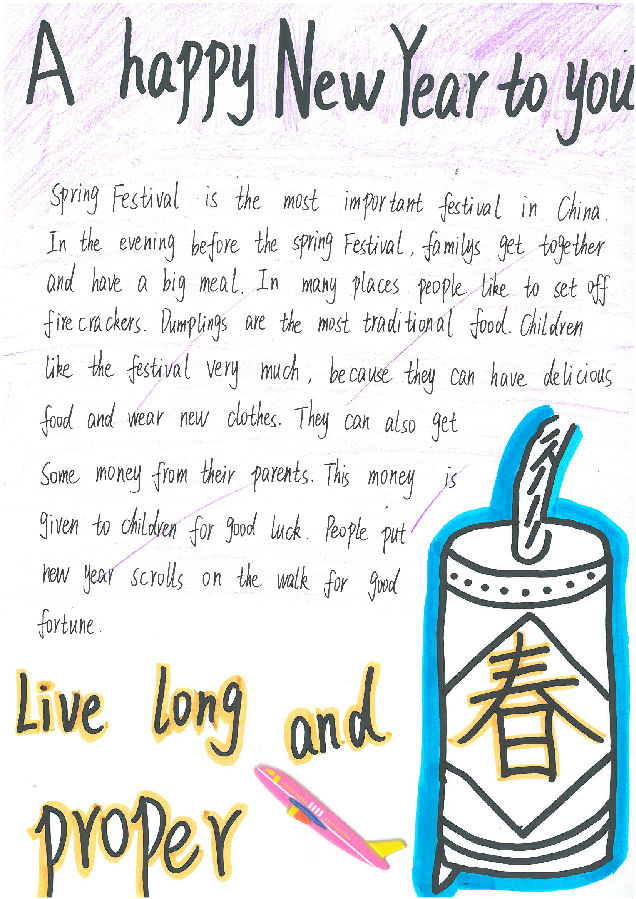 A happy New Year to you
Spring Festival is the most important festival in China.
In the evening before the spring Festival, familys get together
and have a big meal. In many places people like to set off
fire crackers. Dumplings are the most traditional food. Children
like the festival very much, because they can have delicious
food and wear new clothes. They can also get
Some money from their parents. This money is
given to children for good luck. People put
new year scrolls on the walk for good
fortune.
Live long and
proper
春